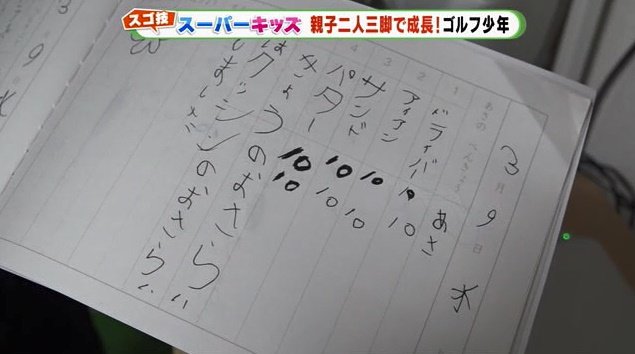 スゴ技 スーパーキッズ 親子二人三脚で成長!ゴルフ少年
3月9日 水
あさのべんきょう
あさ
1 ドライバー 10 10
2 アイアン 10 10
3 サンド 10 10
4 パター 10 10
きょうのおさらい
のおさらい
3
9
水